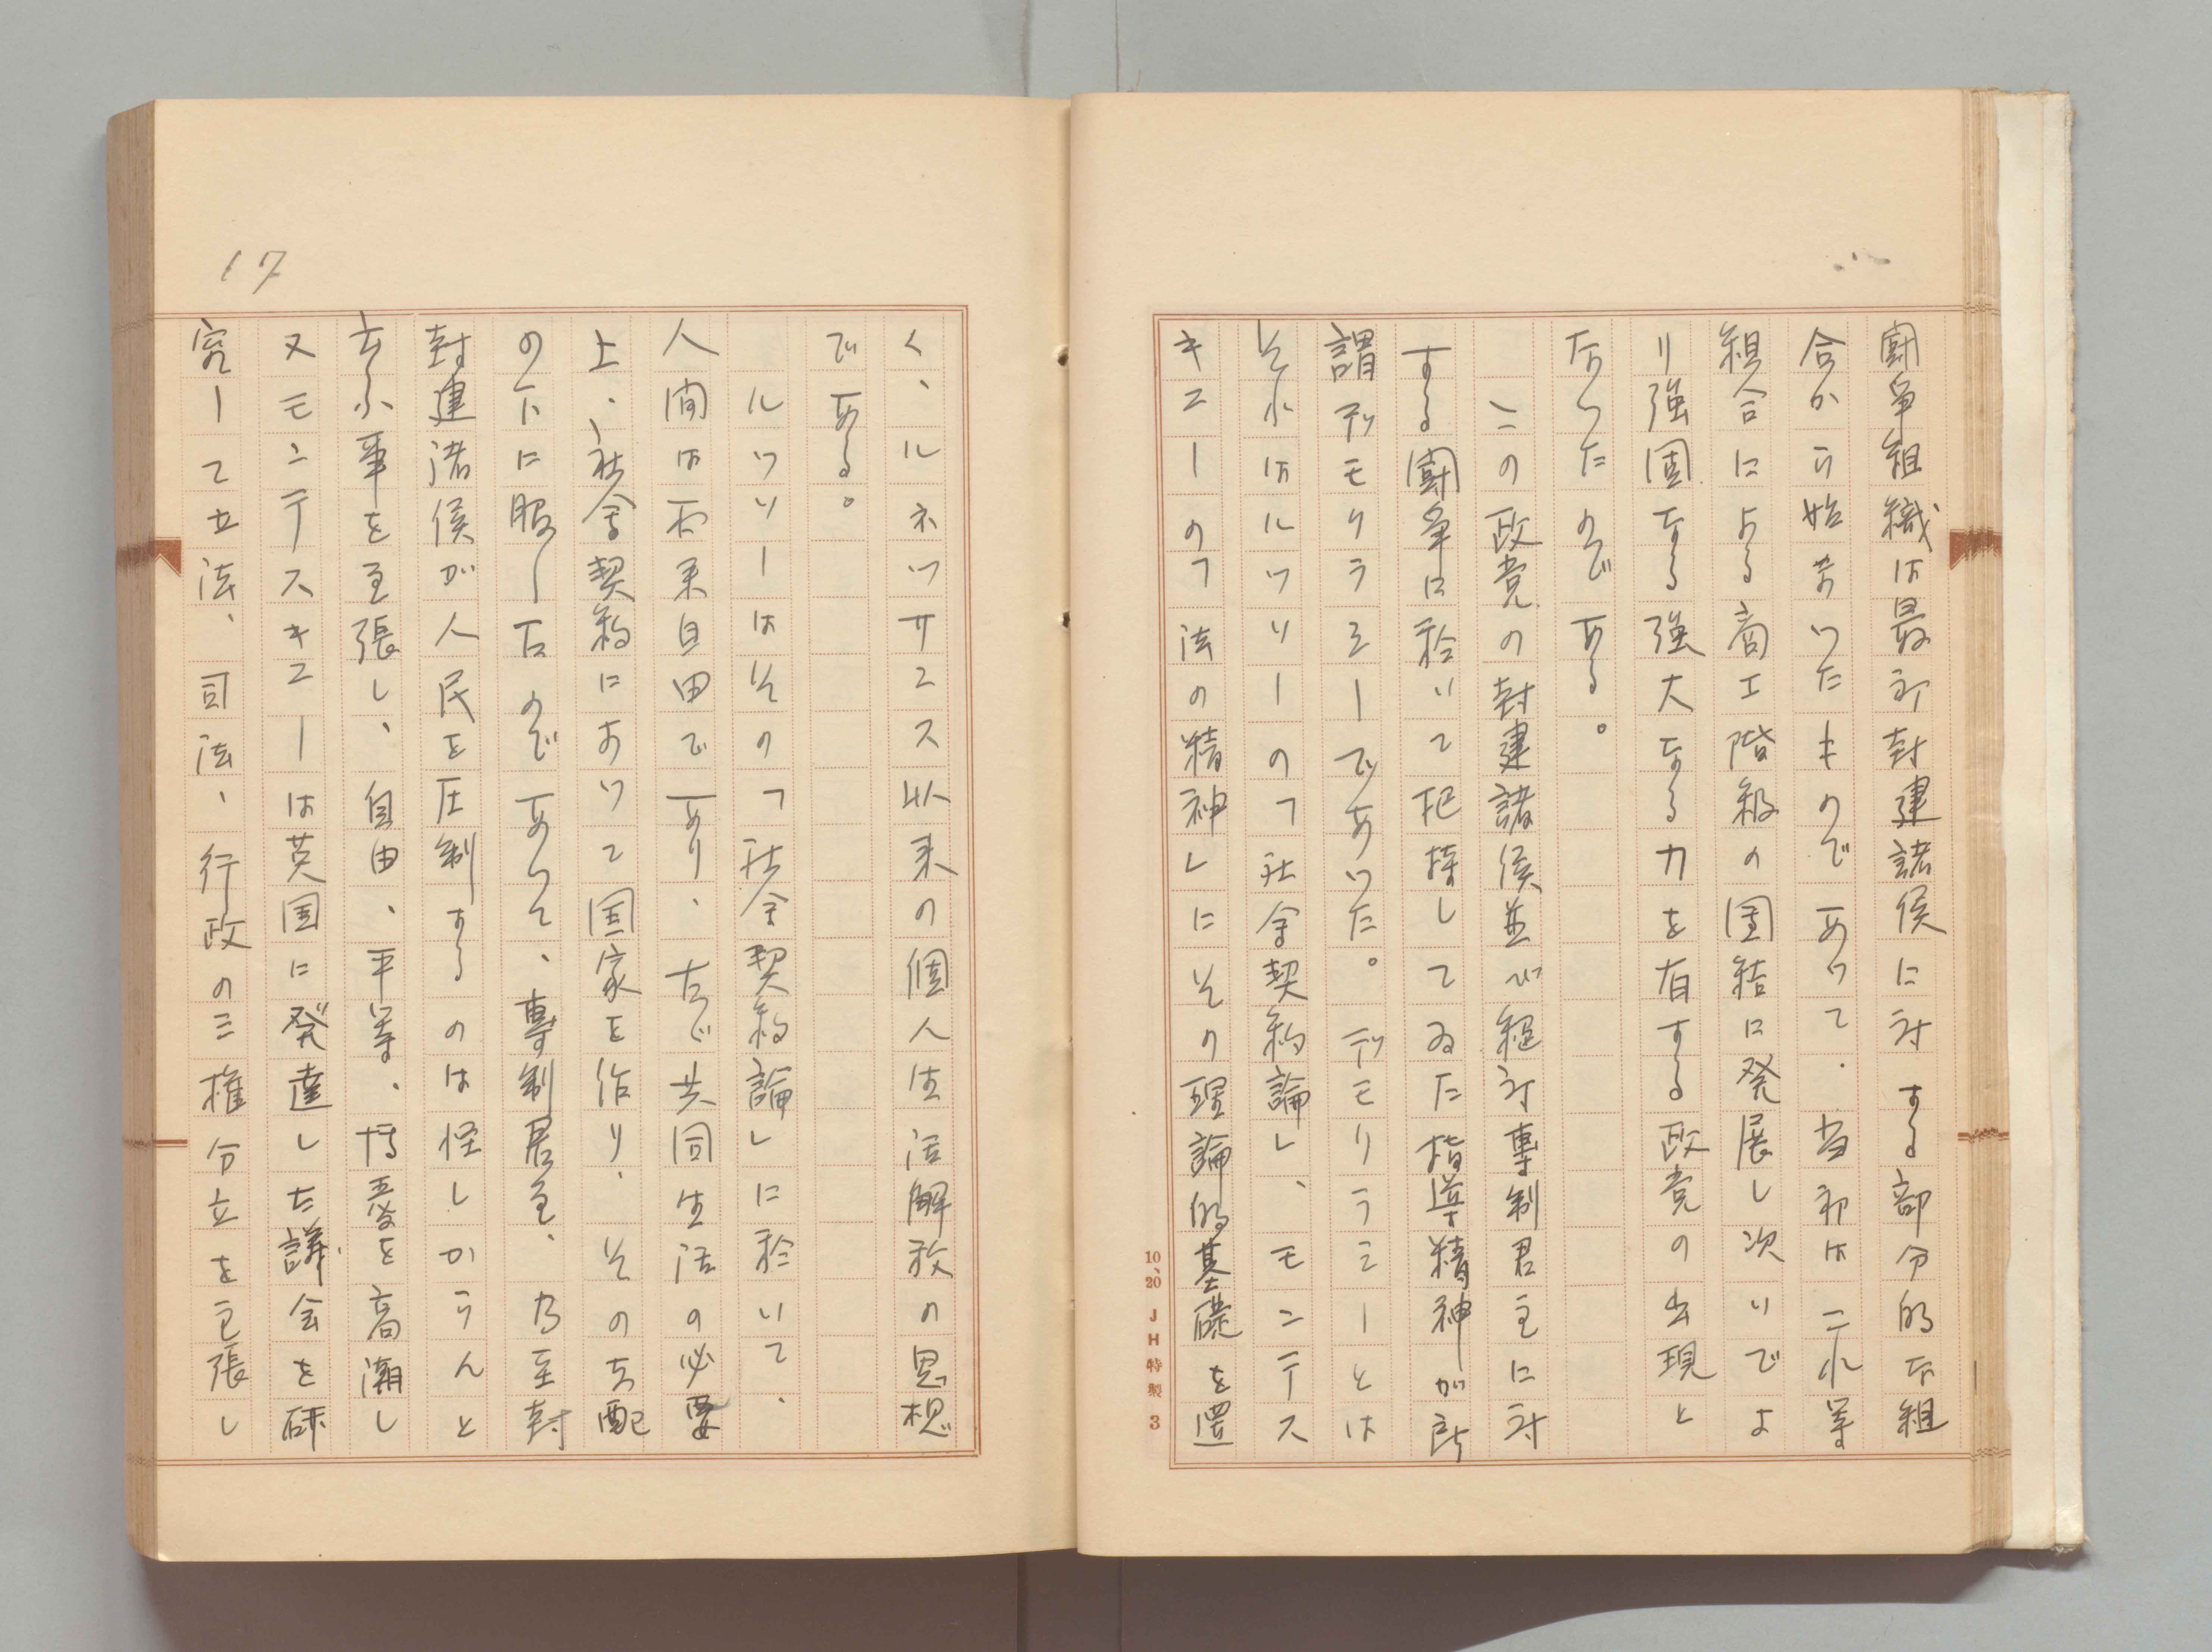 闘争組織は最初封建諸侯に対する部分的な組
合から始まつたものであつて、当初はこれ等
組合による商工階級の団結に発展し次いでよ
り強固なる強大なる力を有する政党の出現と
なつたのである。
この政党の封建諸侯並び絶対専制君主に対
する闘争に於いて把持してゐた指導精神が所
謂デモクラシーであつた。デモクラシーとは
それはルツソーの「社会契約論」、モンテス
キユーの「法の精神」にその理論的基礎を置
10、20 JH特製 3
17
く、ルネツサンス以来の個人生活解放の思想
である。
ルツソーはその「社会契約論」に於いて、
人間は本来自由であり、たゞ共同生活の必要
上、社会契約によつて国家を作り、その支配
の下に服したのであつて、専制君主、乃至封
建諸侯が人民を圧制するのは怪しからんと
云ふ事を主張し、自由、平等、博愛を高潮し
又モンテスキユーは英国に発達した議会を研
究して立法、司法、行政の三権分立を主張し